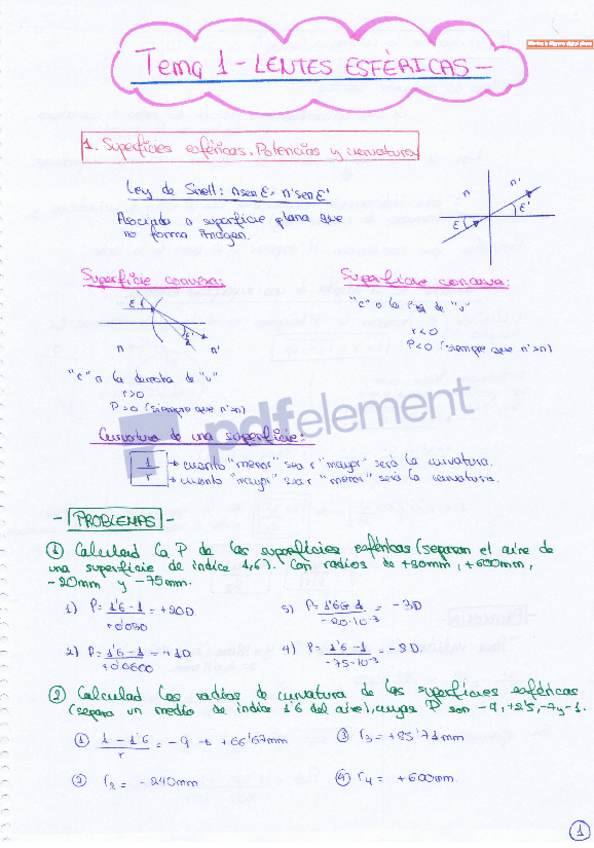 Tema 1 - LENTES ESFÉRICAS -
1. Superficies esféricas. Potencias y curvaturas
Ley de Snell: n sen ε = n' sen ε'
n n'
Asociada a superficie plana que
ε ε'
no forma imagen.
Superficie convexa: Superficie concava:
"c" a la izq de "v"
ε ε'
r<0
n n'
P<0 (siempre que n'>n)
"c" a la derecha de "v"
r>0
P>0 (siempre que n'>n)
pdfelement
Curvatura de una superficie:
1/r → cuanto "menor" sea r "mayor" será la curvatura.
→ cuanto "mayor" sea r "menor" será la curvatura.
- PROBLEMAS -
① Calculad la P de las superficies esféricas (separan el aire de
una superficie de índice 1,6). Con radios de +30mm, +600mm,
-20mm y -75mm.
1) P = 1'6 - 1 / +0'030 = +20D 3) P = 1'6 - 1 / -20·10⁻³ = -30
2) P = 1'6 - 1 / +0'0600 = +1D 4) P = 1'6 - 1 / -75·10⁻³ = -8D
② Calculad los radios de curvatura de las superficies esféricas
(separa un medio de índice 1'6 del aire), cuyas P son -9, +2'5, -7 y -1.
① 1 - 1'6 / r = -9 → +66'67mm ③ r₃ = +85'71mm
② r₂ = -240mm ④ r₄ = +600mm.
1